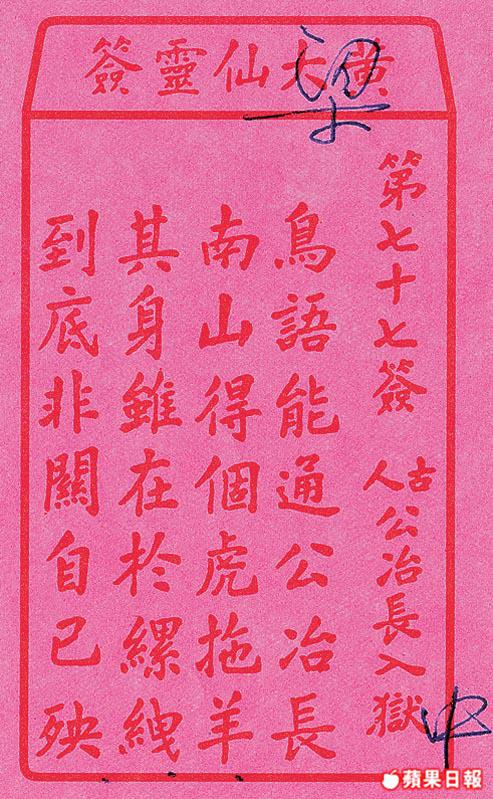 黃大仙靈簽
第七十七簽 古人 公冶長入獄
鳥語能通公冶長
南山得個虎拖羊
其身雖在於縲絏
到底非關自已殃
中
蘋果日報